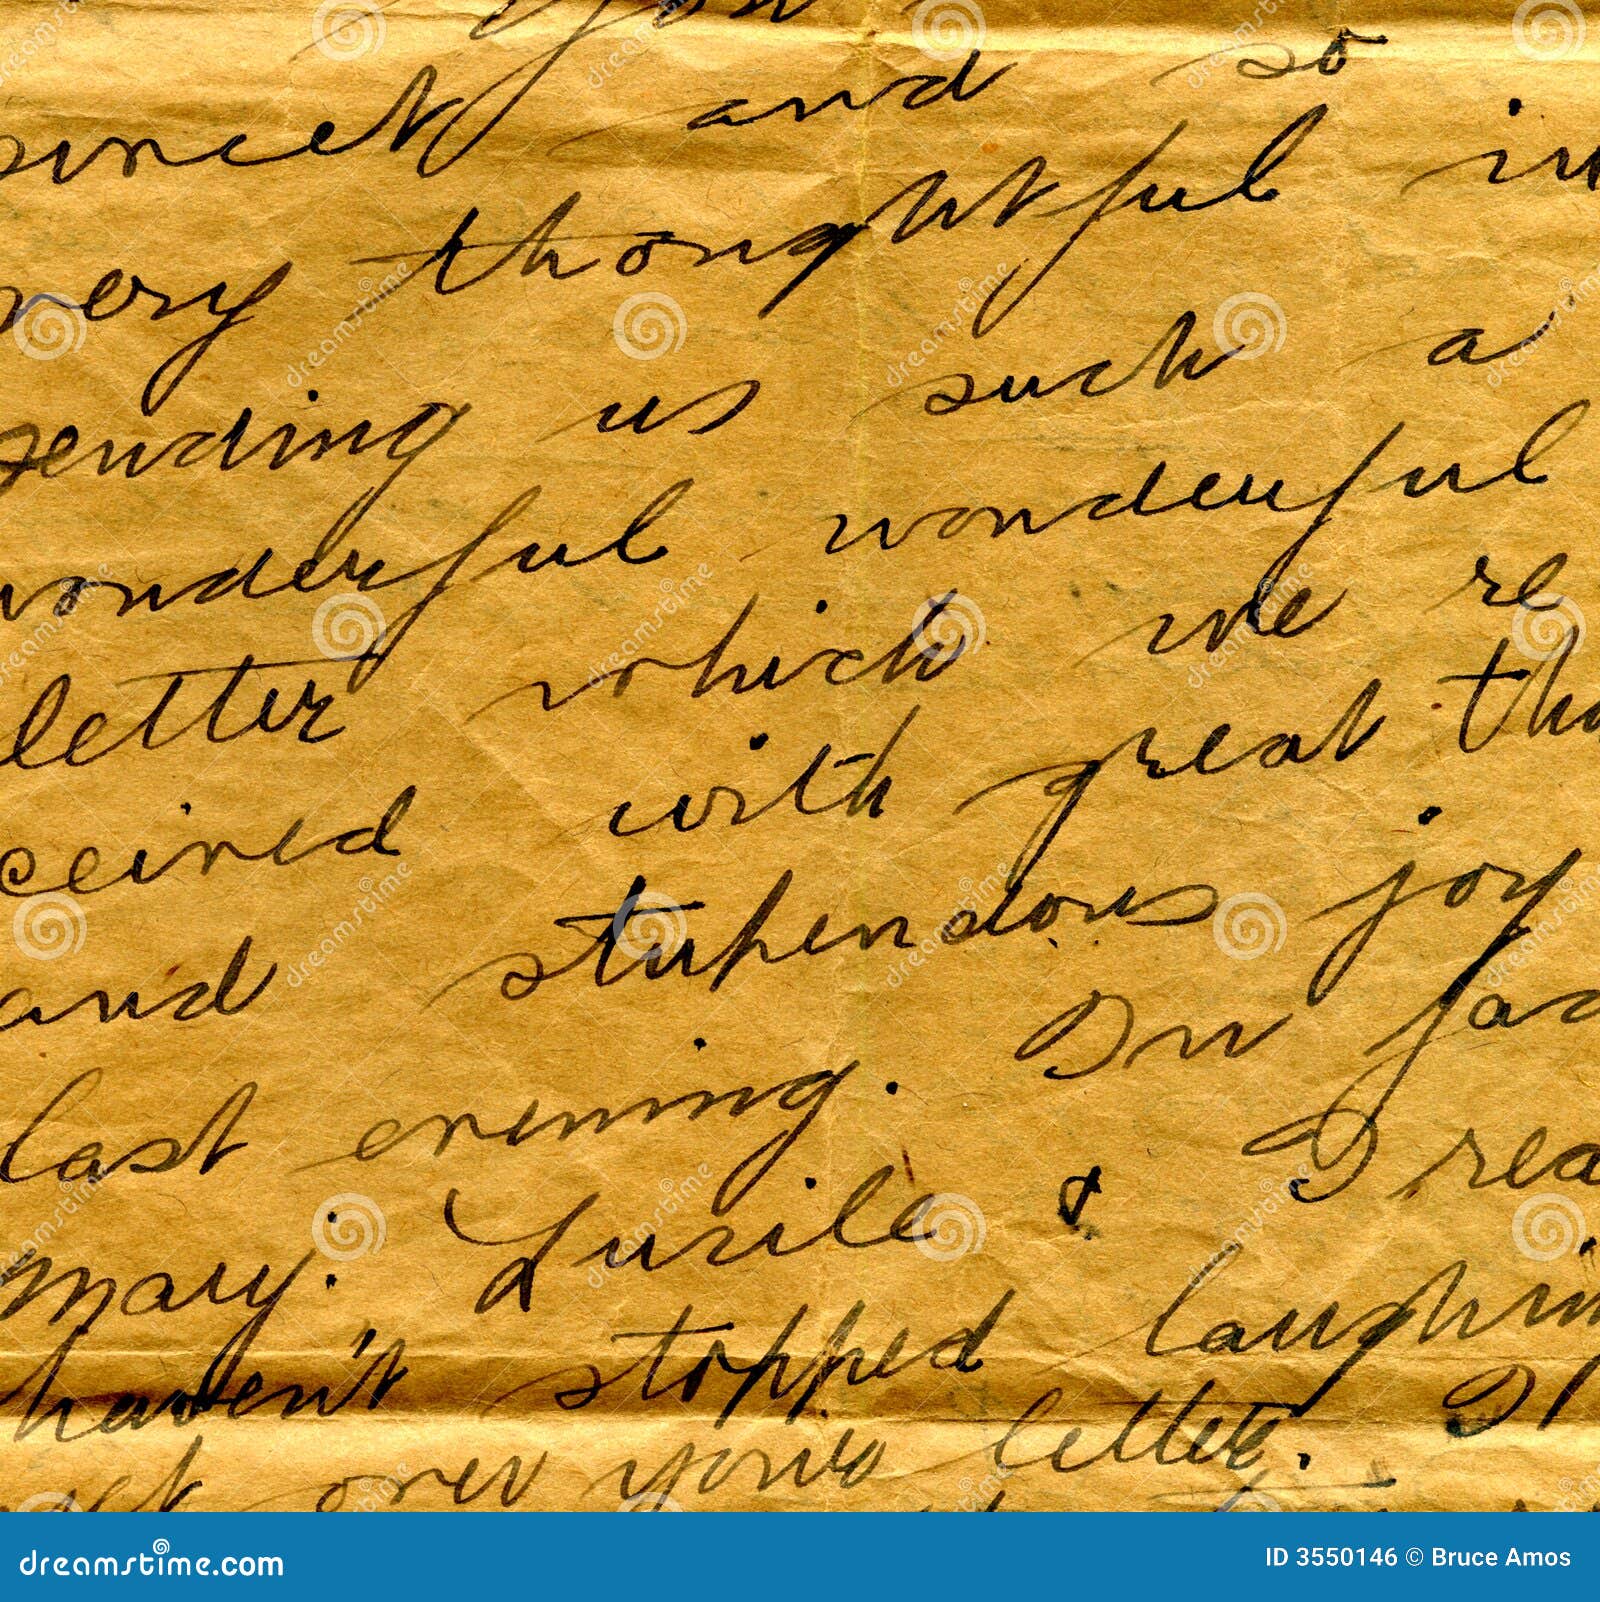 you
sweet and so
very thoughtful in
sending us such a
wonderful wonderful
letter which we re
ceived with great tho
and stupendous joy
last evening. In fac
mary. Lucile & I rea
haven't stopped laughin
yet over your letter. I
dreamstime.com
ID 3550146 © Bruce Amos